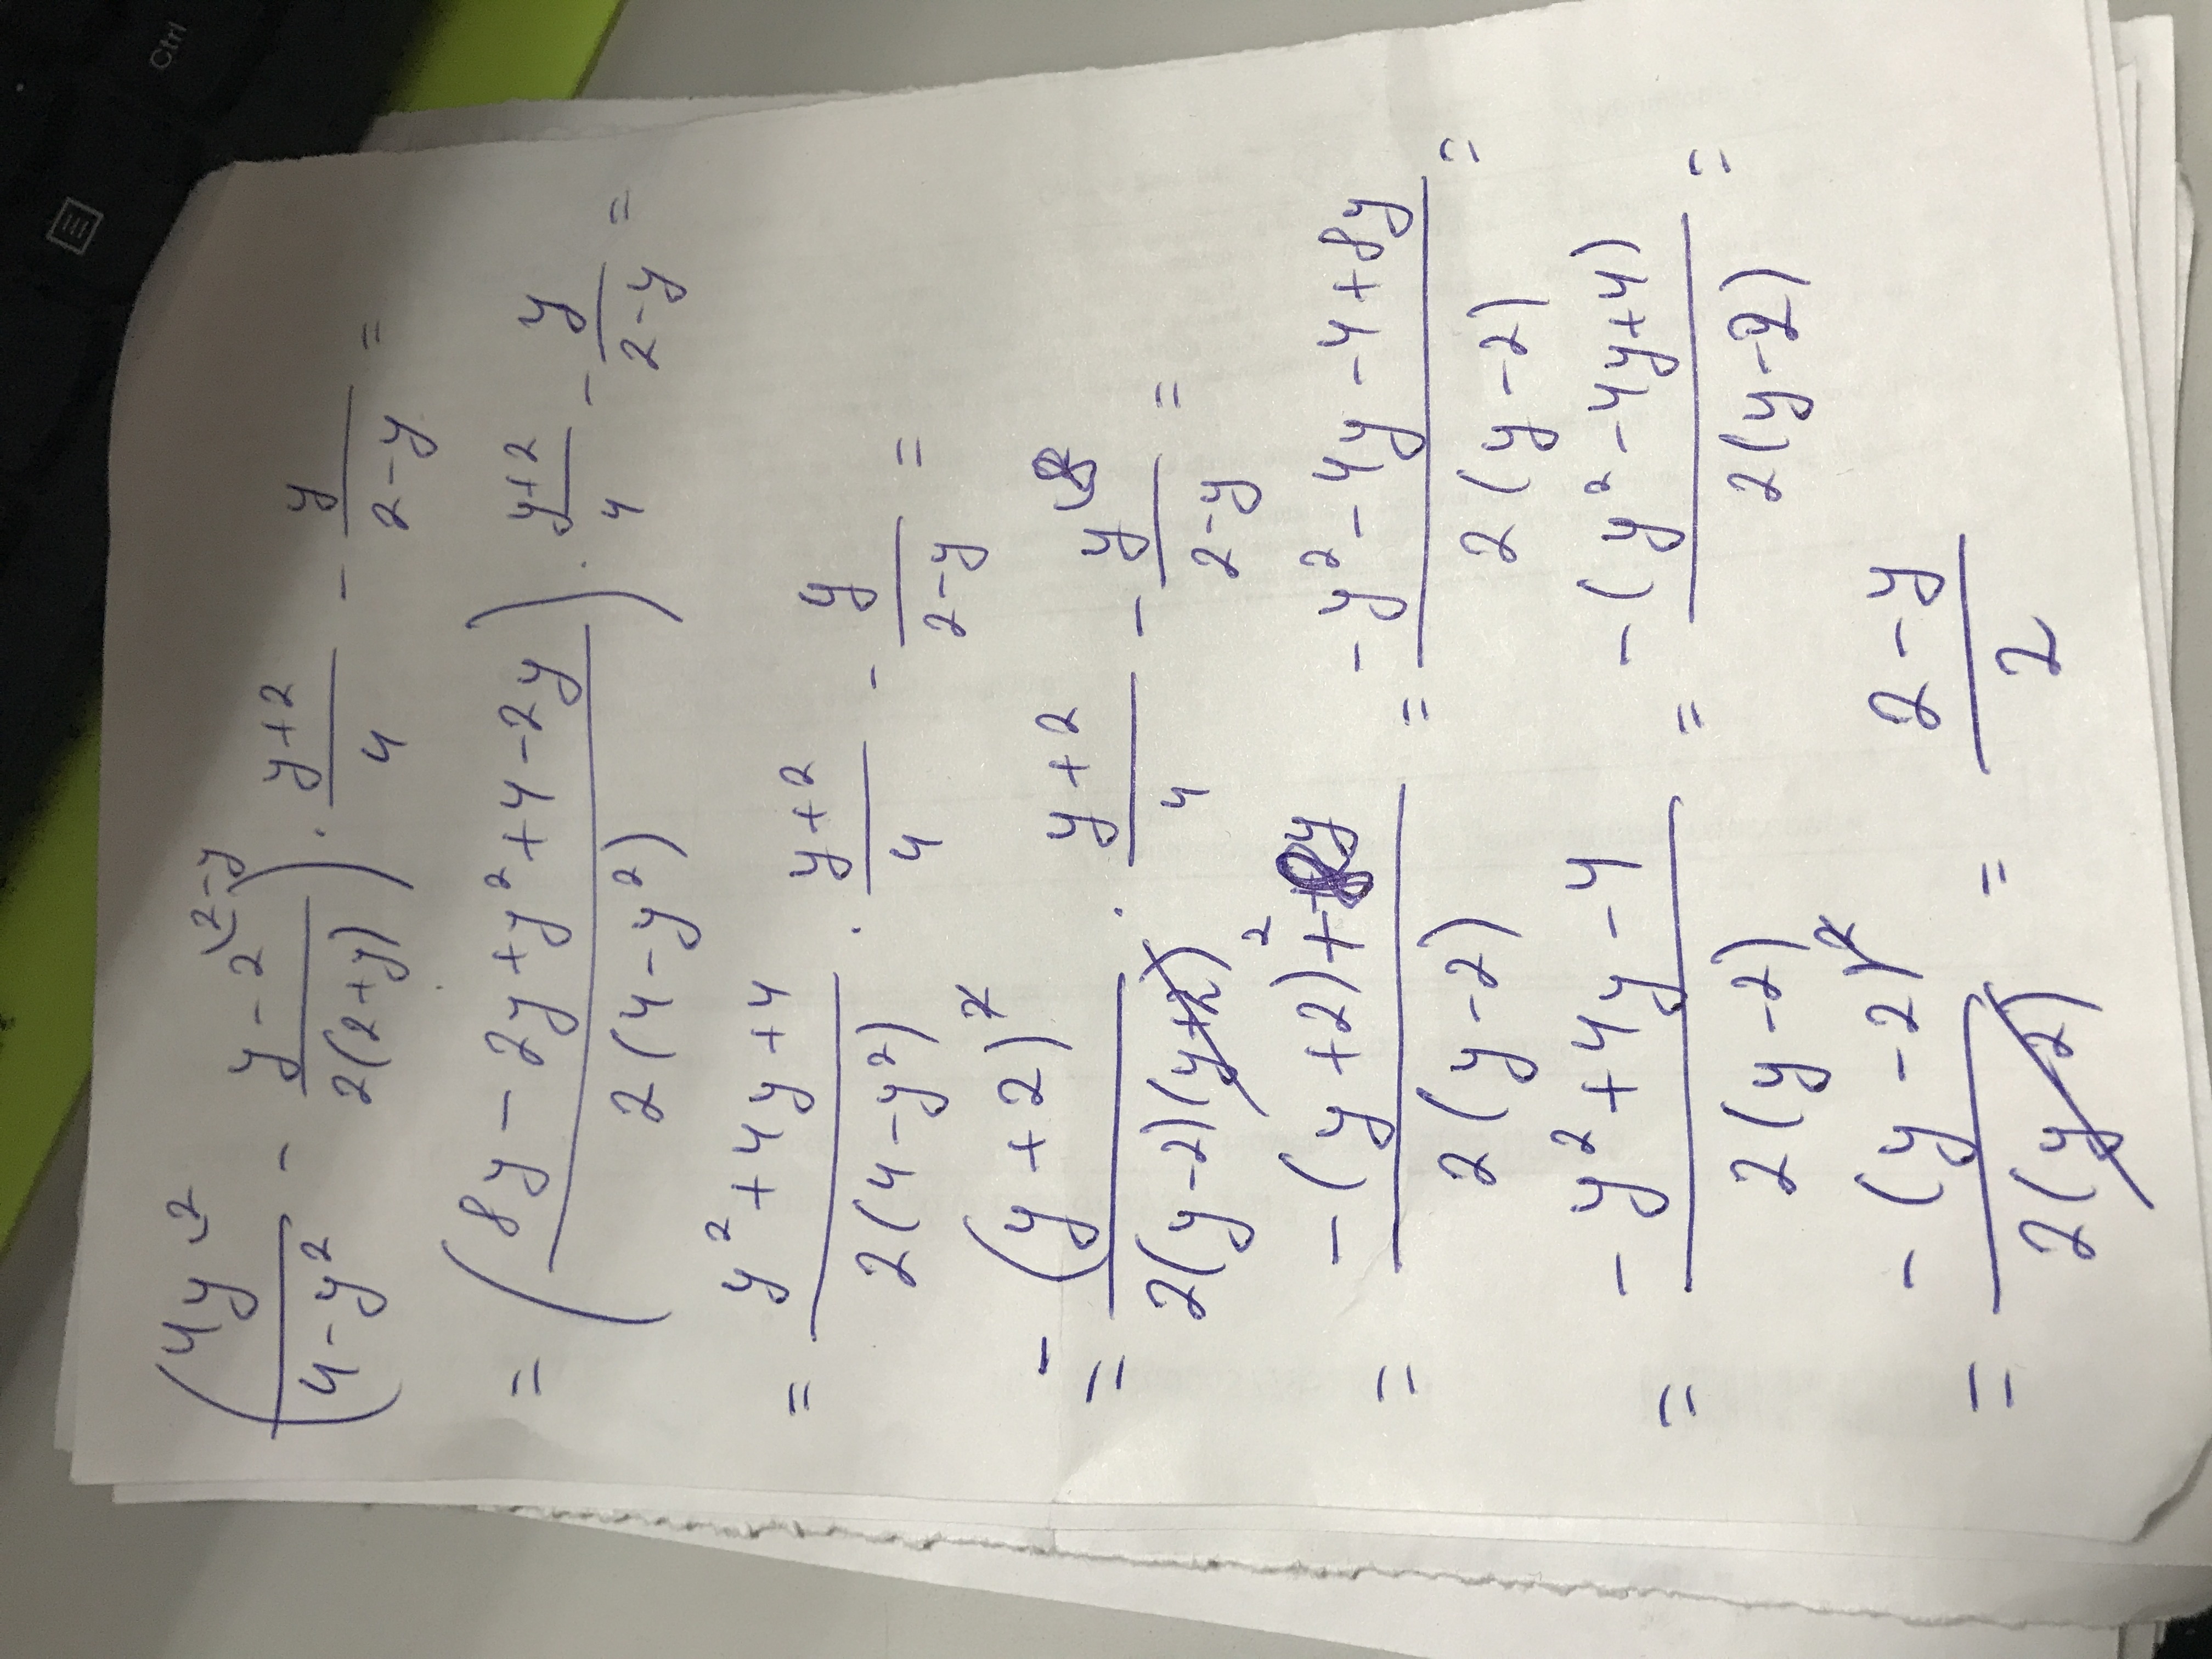 Ctrl
(4y\2/(4-y²) - (y-2\2-y)/(2(2+y))) · (y+2)/4 - y/(2-y) =
= ((8y-2y+y²+4-2y)/(2(4-y²))) · (y+2)/4 - y/(2-y) =
= (y²+4y+4)/(2(4-y²)) · (y+2)/4 - y/(2-y) =
= -(y+2)²/(2(y-2)(y+2)) · (y+2)/4 - y/(2-y) =
= (-(y+2)²+8y)/(2(y-2)) = (-y²-4y-4+8y)/(2(y-2)) =
= (-y²+4y-4)/(2(y-2)) = -(y²-4y+4)/(2(y-2)) =
= -(y-2)²/(2(y-2)) = (2-y)/2